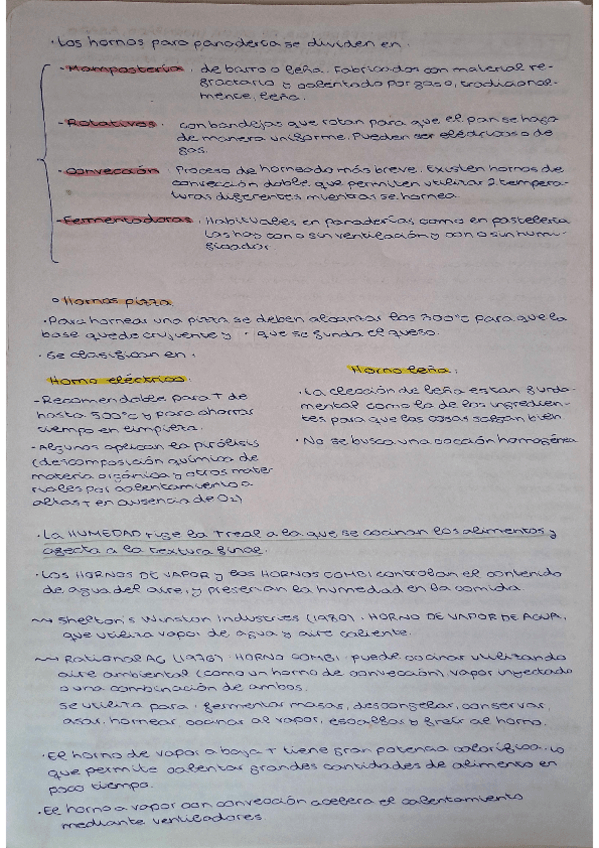 · Los hornos para panadería se dividen en:
- Mampostería: de barro o leña. Fabricados con material re-
fractario y calentado por gas o, tradicional-
mente, leña.
- Rotativos: con bandejas que rotan para que el pan se haga
de manera uniforme. Pueden ser eléctricos o de
gas.
- Convección: Proceso de horneado más breve. Existen hornos de
convección doble que permiten utilizar 2 tempera-
turas diferentes mientras se hornea.
- Fermentadoras: Habituales en panaderías como en pastelería
las hay con o sin ventilación y con o sin humi-
ficador.
Hornos pizza
· Para hornear una pizza se deben alcanzar los 300ºC para que la
base quede crujiente y que se funda el queso.
· Se clasifican en:
Horno eléctrico:
- Recomendable para T de
hasta 500ºC y para ahorrar
tiempo en limpieza.
- Algunos aplican la pirólisis
(descomposición química de
materia orgánica y otros mate-
riales por calentamiento a
altas T en ausencia de O2)
Horno leña:
· La elección de leña es tan funda-
mental como la de los ingredien-
tes para que las cosas salgan bien.
· No se busca una cocción homogénea
· La HUMEDAD rige la T real a la que se cocinan los alimentos y
afecta a la textura final.
· LOS HORNOS DE VAPOR y los HORNOS COMBI controlan el contenido
de agua del aire, y preservan la humedad en la comida.
Shelton's Winston Industries (1980). HORNO DE VAPOR DE AGUA,
que utiliza vapor de agua y aire caliente.
Rational AG (1976). HORNO COMBI. puede cocinar utilizando
aire ambiental (como un horno de convección) vapor inyectado
o una combinación de ambos.
Se utiliza para: fermentar masas, descongelar, conservar,
asar, hornear, cocinar al vapor, escalfar y freír al horno.
· El horno de vapor a baja T tiene gran potencia calorífica, lo
que permite calentar grandes cantidades de alimento en
poco tiempo.
· El horno a vapor con convección acelera el calentamiento
mediante ventiladores.